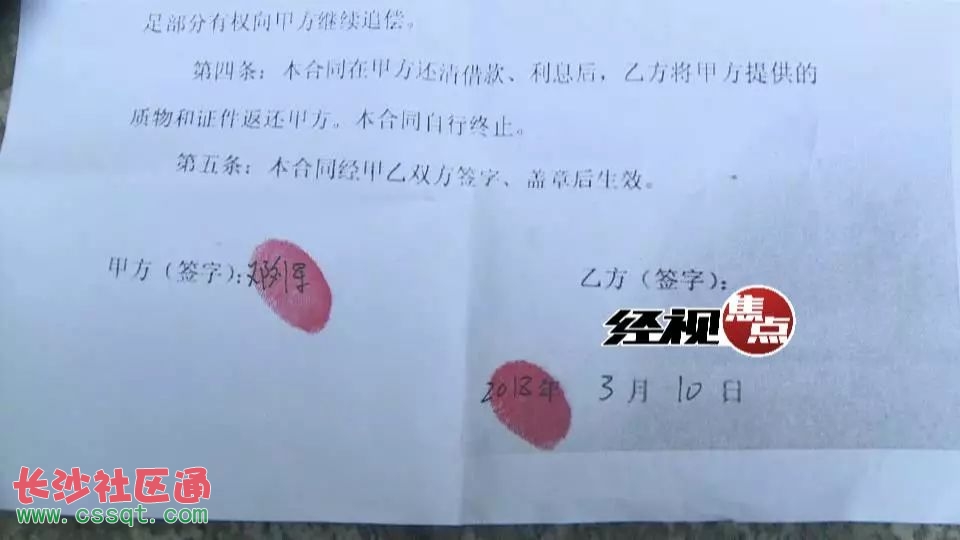 足部分有权向甲方继续追偿。
第四条：本合同在甲方还清借款、利息后，乙方将甲方提供的
质物和证件返还甲方。本合同自行终止。
第五条：本合同经甲乙双方签字、盖章后生效。
甲方（签字）：
乙方（签字）：
经视焦点
2018年 3月 10日
长沙社区通
www.cssqt.com